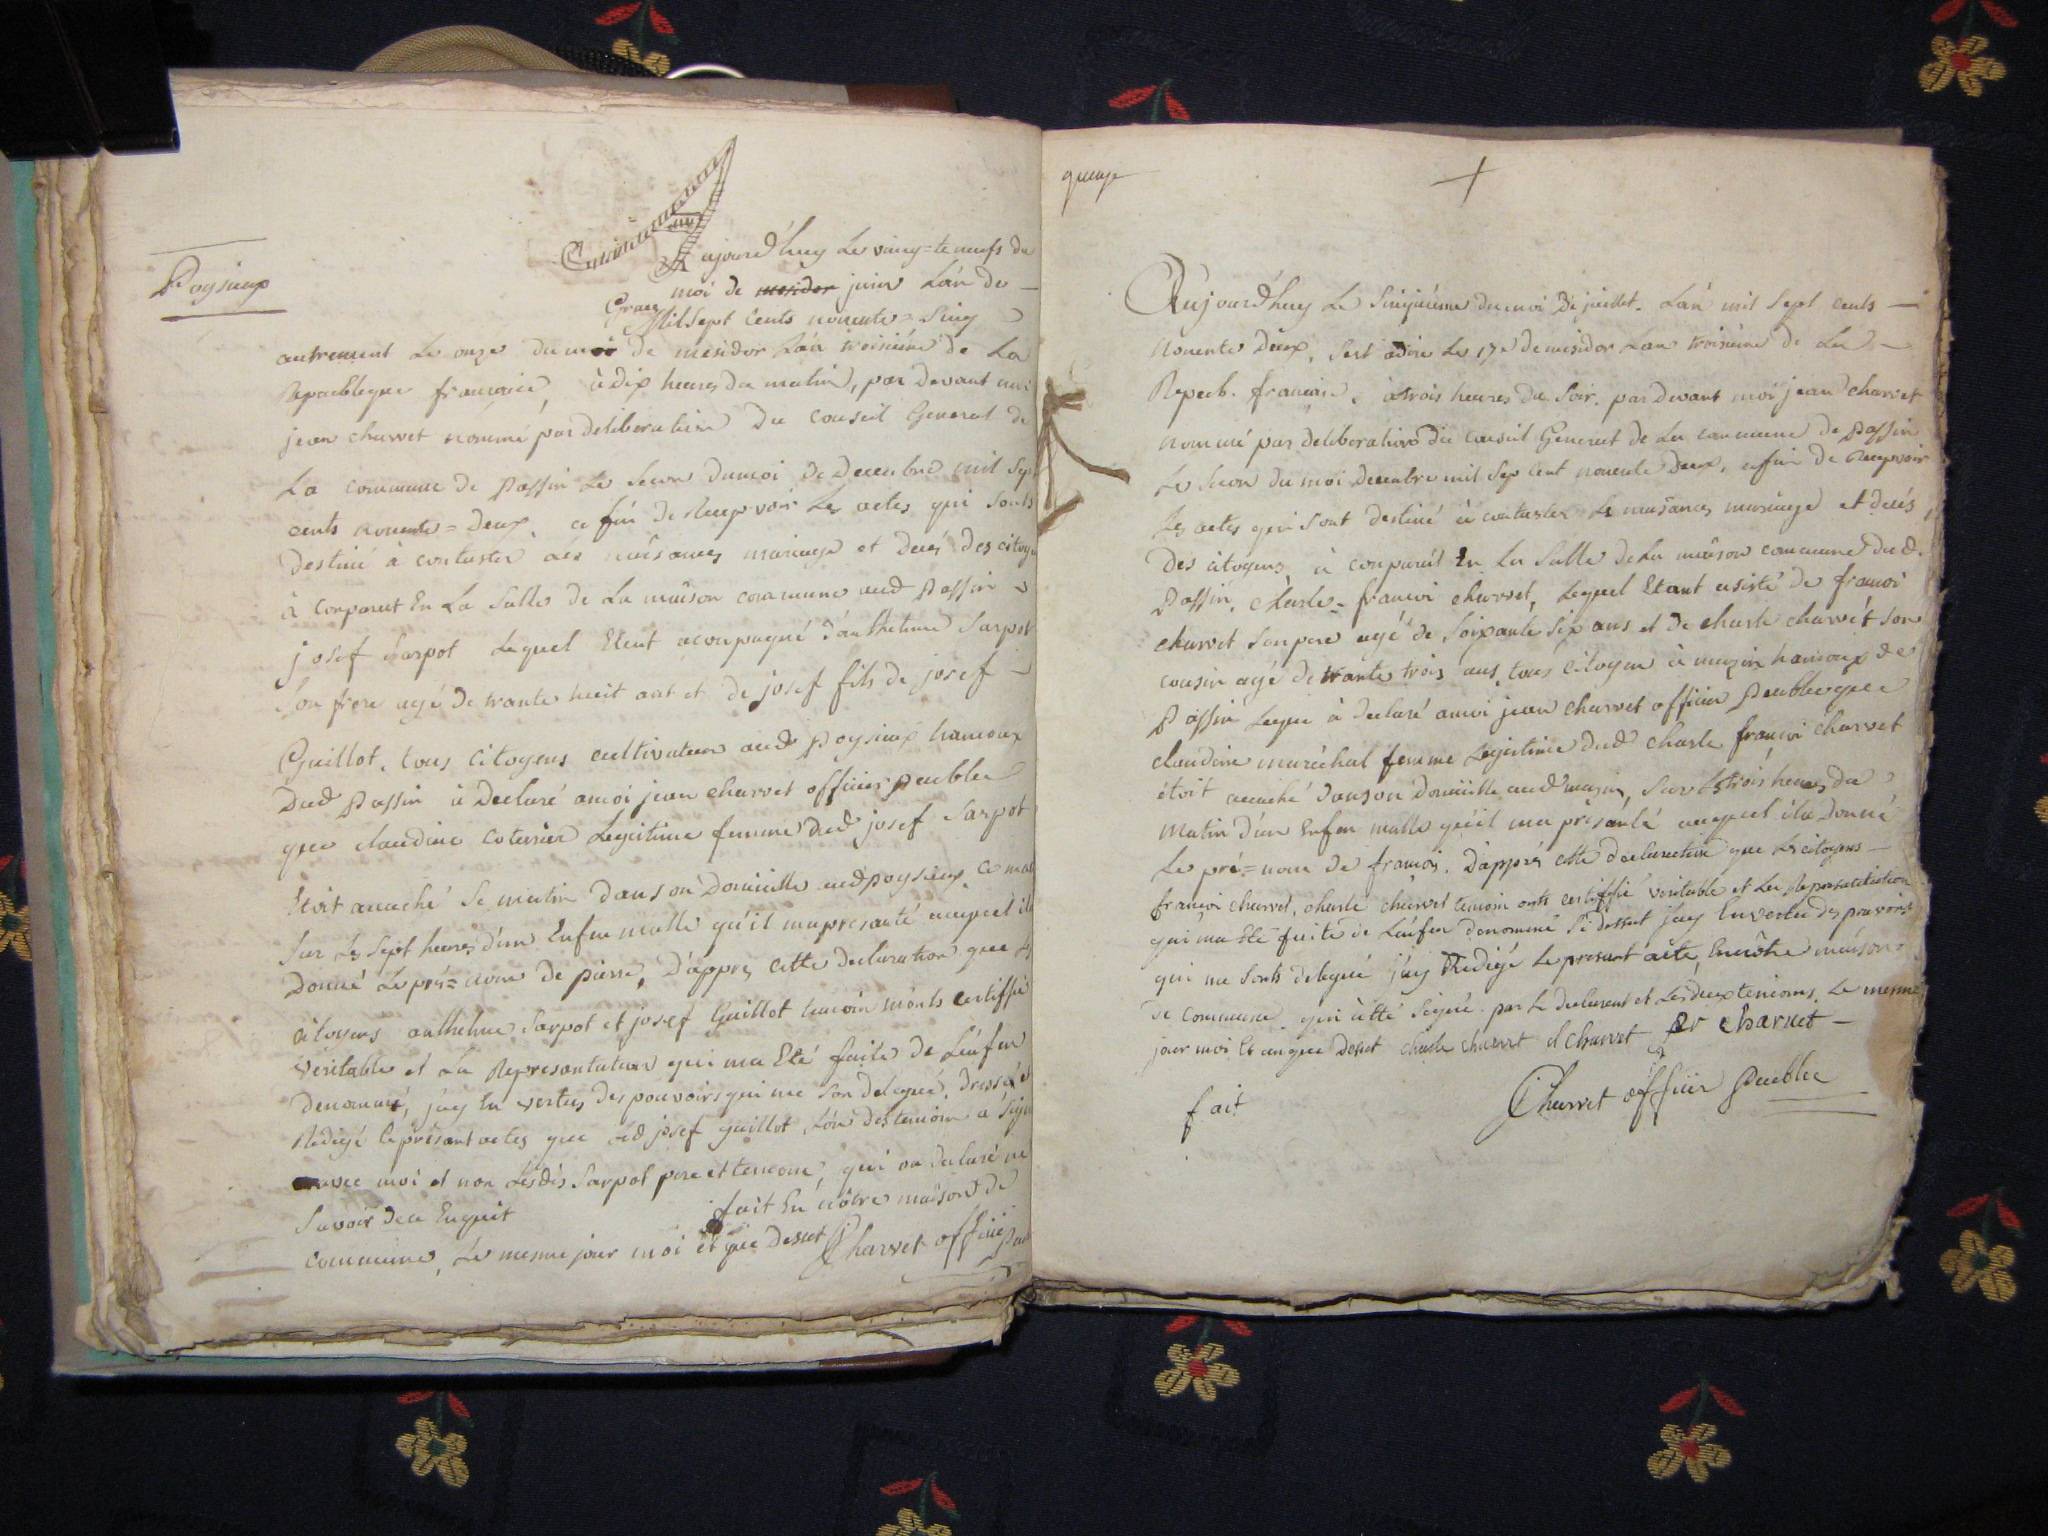 Poysieux
Aujourd'huy Le vingt=te neufs du
moi de mesidor juin L'an de
Grace Mil sept cents nonente = sinq
autrement Le onze du moi de mesidor L'an troisième de La
Repueblegue francoice, à dix heures du matin, par devant moi
jean charvet nommé par deliberation du conseil General de
La commune de Passin Le secon du moi de Decembre mil sept
cents nonente = deux, a fin de Recepvoir Les actes qui sonts
destiné à contaster Les naisances mariage et decés des citoyens
à comparut En La Salle de La maison commune aud Passin
josef Sarpot Lequel Etent acompagné d'anthelme Sarpot
Son frere agé de trante huit ant et de josef fils de josef
Guillot, tous citoyens cultivateur aud Poysieux hamoux
Dud Passin à Declaré amoi jean charvet officier peublec
que claudine coterrier Legitime femme Dud josef Sarpot
Etoit acuché Se matin dans son Domicille aud poysieux, ce matin
Sur Les sept heures d'un Enfen malle qu'il ma presanté auquel il a
Donné Le pré=nom de pierre, D'apprés cette declaration que Les
citoyens anthelme Sarpot et josef Guillot temoin m'onts certiffié
Veritable et La Represantation qui ma Eté faite de L'enfen
denommé, j'ay En vertus des pouvoirs qui me son delegué, dressé et
Redigé le présant actes que Led josef guillot L'un des temoin à signé
avec moi et non Lesdits Sarpot pere et temoin, qui on declaré ne
Savoir de ce Enquit fait En nôtre maison de
commune, Le mesme jour moi et que desut Charvet officier
+
Aujourd'huy Le Sinquième du moi De juillet. L'an mil Sept cents
Nonente Deux, sest adire Le 17e de mesidor L'an troisième de La
Repeub. francoise, à trois heures du Soir. par devant moi jean charvet
nommé par deliberation du conseil General de La commune de Passin
Le Secon du moi Decembre mil Sep cent nonente Deux, affin de Recepvoir
Les actes qui sont destiné à contaster Le naisances mariage et decés
Des citoyens, à comparut En La Salle de La maison commune dud.
Passin, charle=francoi charvet, Lequel Etant asisté de francoi
charvet son pere agé de Soixante six ans et de charle charvét son
cousin agé de trante trois ans, tous citoyen à mazin hamoux de
Passin Leque à Declaré amoi jean charvet officier Peublec que
claudine maréchal femme Legitime dud charle francoi charvet
étoit acuché dans son Domicille aud mazin, Sur Les trois heures du
matin d'un Enfen malle qu'il ma présanté auquel il a Donné
Le pré=nom de francoi. D'apprés cette declaration que Les citoyens
francoi charvet, charle charvet temoin onts certiffié veritable et La Represantation
qui ma Eté faite de L'enfen denommé Si dessut j'ay En vertu des pouvoirs
qui me sonts delegué j'ay Redigé Le presant acte, En nôtre maison
de commune qui àété Signé par Le declarent et Les deux temoins. Le mesme
jour moi Et an que Desut charle charvet cf charvet fr charvet
fait Charvet officier Peublec